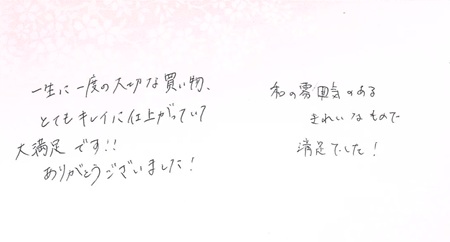 一生に一度の大切な買い物、
とてもキレイに仕上がっていて
大満足です!!
ありがとうございました!
和の雰囲気のある
きれいなもので
満足でした!